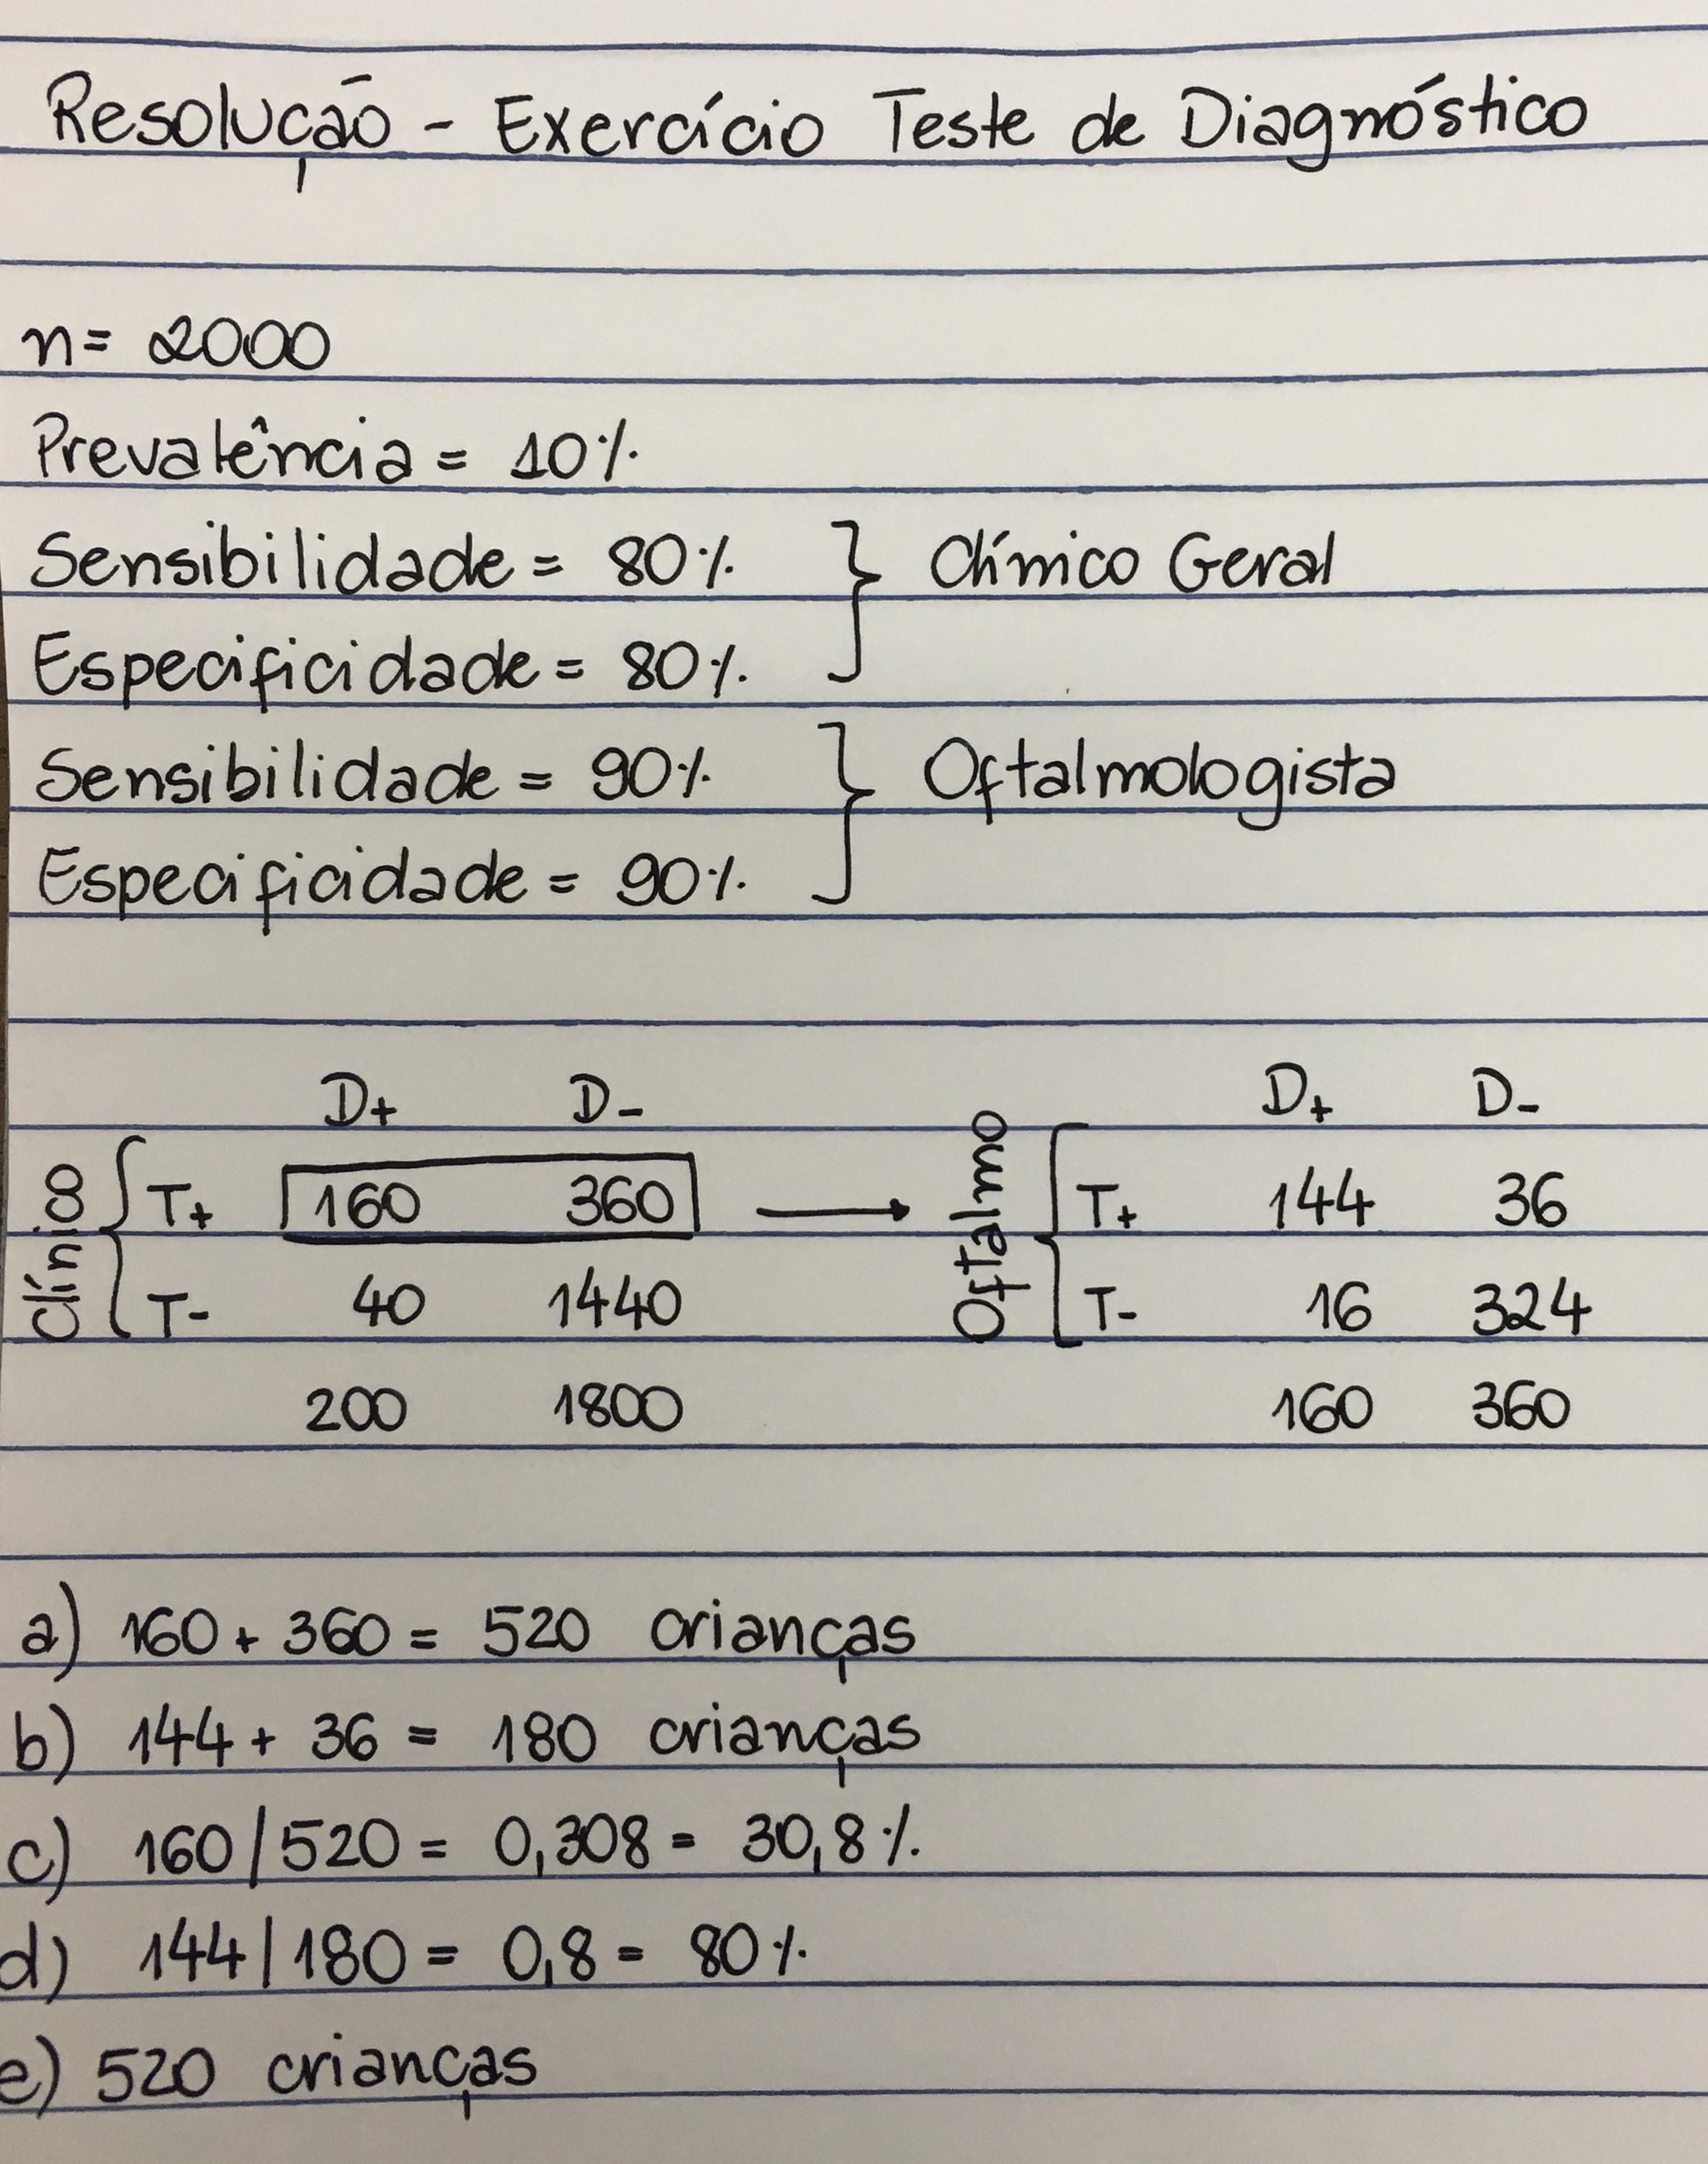 Resolução - Exercício Teste de Diagnóstico
n= 2000
Prevalência = 10%
Sensibilidade = 80% } Clínico Geral
Especificidade = 80%
Sensibilidade = 90% } Oftalmologista
Especificidade = 90%
D+ D- D+ D-
Clínico T+ 160 360 → Oftalmo T+ 144 36
T- 40 1440 T- 16 324
200 1800 160 360
a) 160 + 360 = 520 crianças
b) 144 + 36 = 180 crianças
c) 160/520 = 0,308 = 30,8%
d) 144/180 = 0,8 = 80%
e) 520 crianças